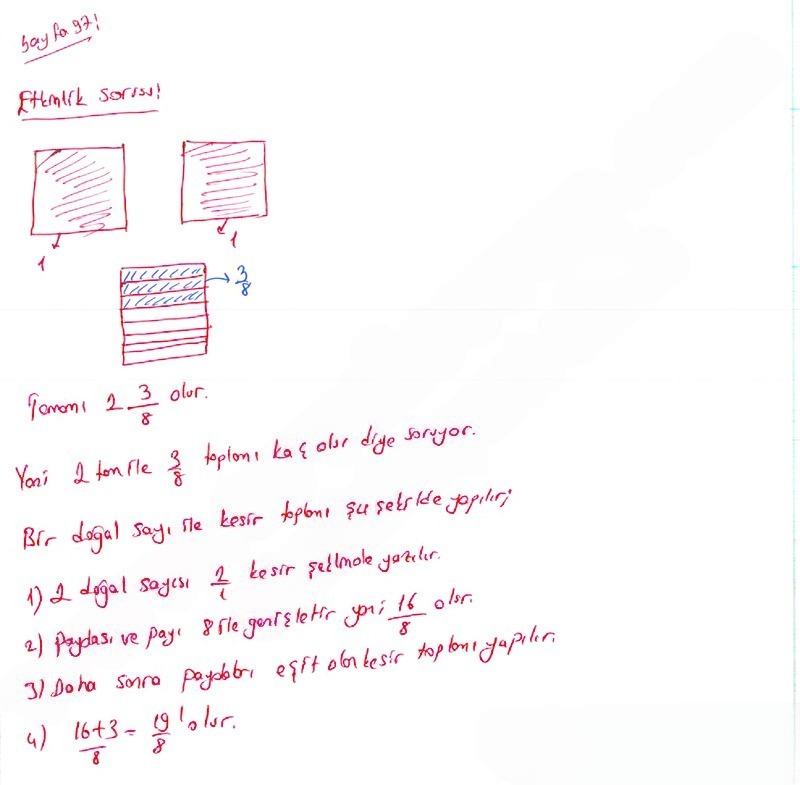 Sayfa 97!
Etkinlik sorusu!
1
1
3/8
Tamamı 2 3/8 olur.
Yani 2 tam ile 3/8 toplamı kaç olur diye soruyor.
Bir doğal sayı ile kesir toplamı şu şekilde yapılır;
1) 2 doğal sayısı 2/1 kesir şeklinde yazılır.
2) Paydası ve payı 8 ile genişletir yani 16/8 olur.
3) Daha sonra paydaları eşit olan kesir toplamı yapılır.
4) 16+3/8 = 19/8 'olur.